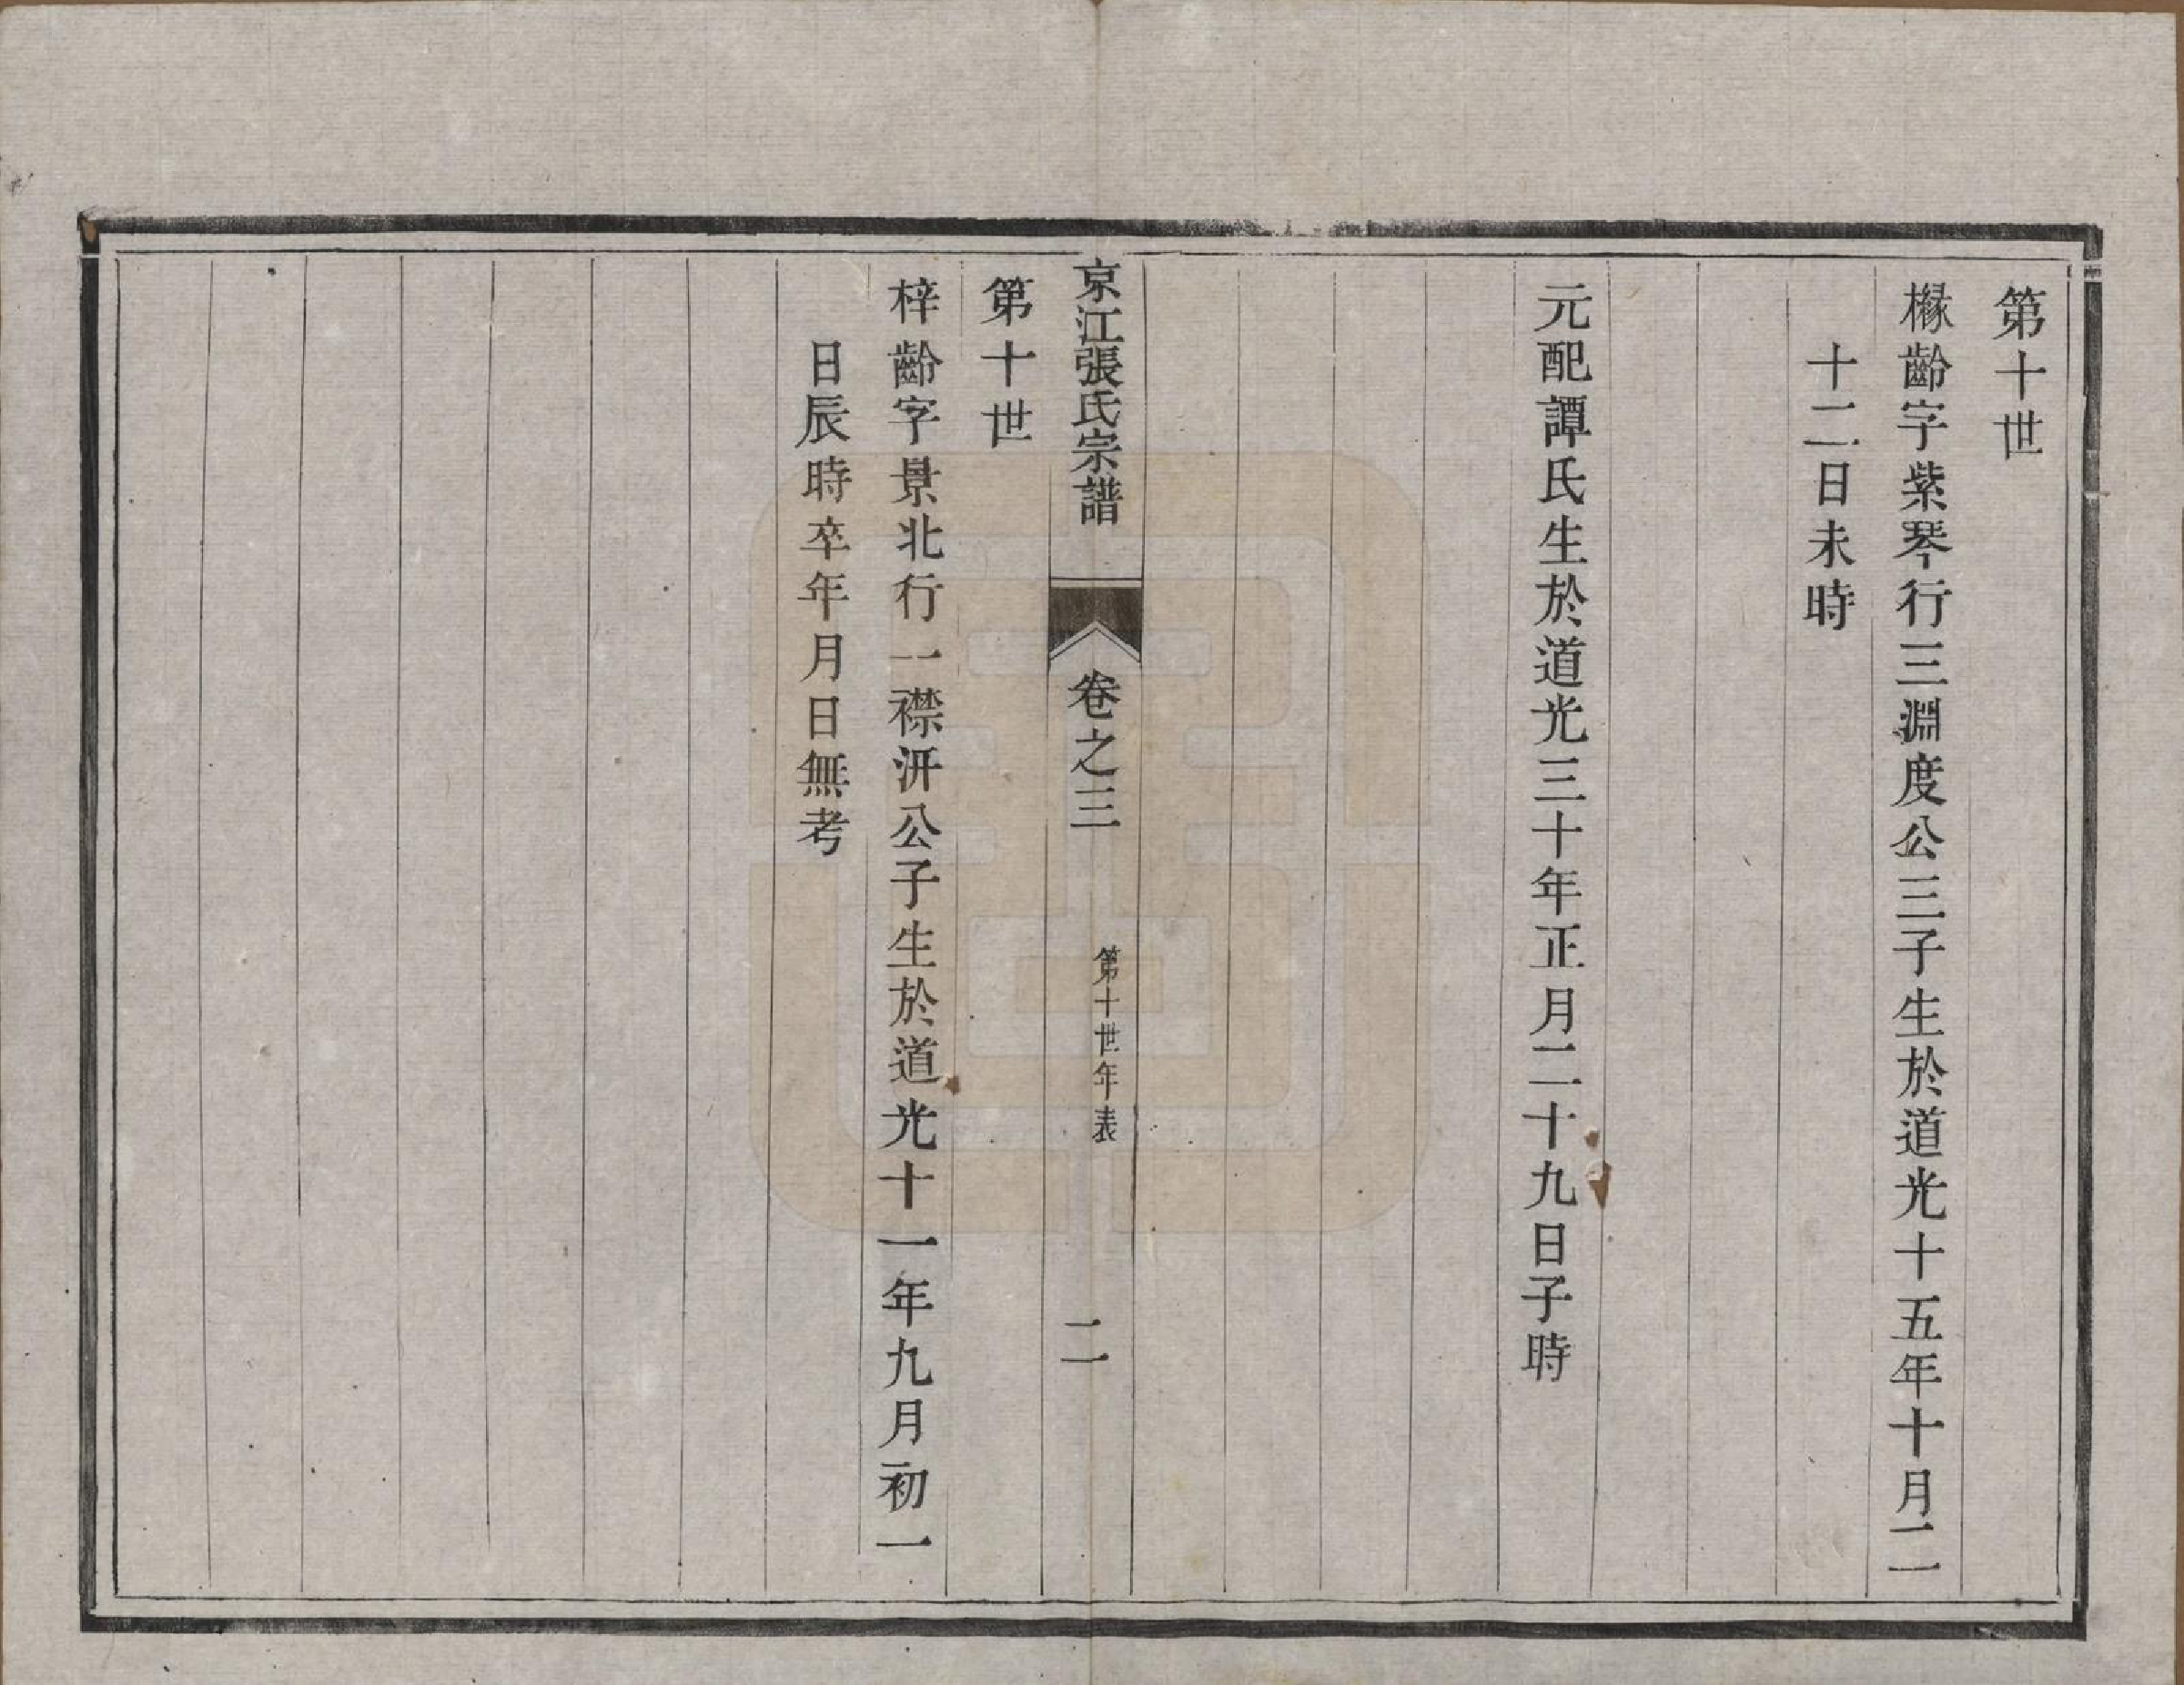 第十世
櫞齡字紫琴行三淵度公三子生於道光十五年十月二
十二日未時
元配譚氏生於道光三十年正月二十九日子時
京江張氏宗譜
卷之三
第十世年表
二
第十世
梓齡字景北行一襟汧公子生於道光十一年九月初一
日辰時卒年月日無考